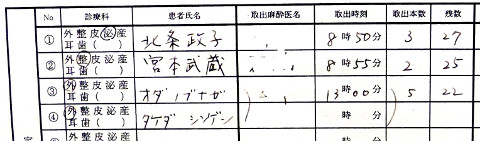 No 診療科 患者氏名 取出麻酔医名 取出時刻 取出本数 残数
① 外整皮泌産耳歯( ) 北条政子 8時50分 3 27
② 外整皮泌産耳歯( ) 宮本武蔵 8時55分 2 25
③ 外整皮泌産耳歯( ) オダノブナガ 13時00分 5 22
④ 外整皮泌産耳歯( ) タケダシンゲン 時 分
外整皮泌産 時 分